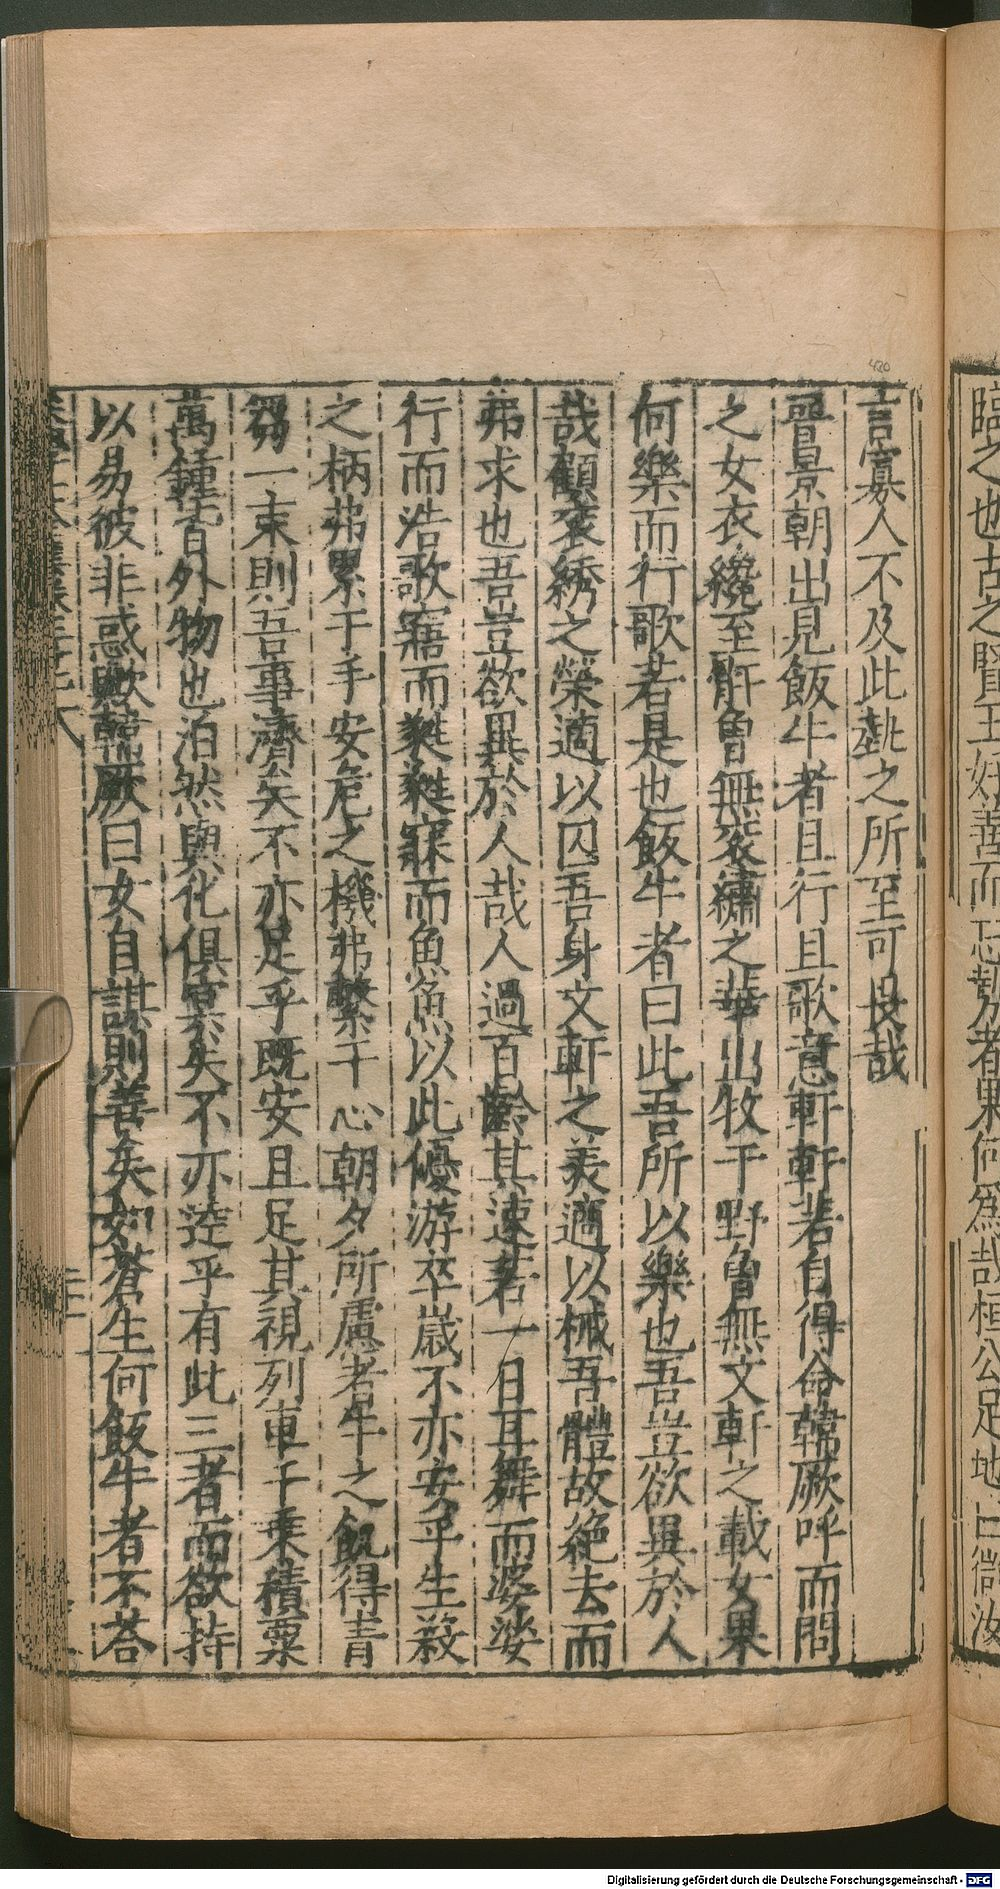 臨之也古之賢王好善而忘勢者果何爲哉桓公足地口微汝
言寡人不及此㙯之所至可畏哉
晉景朝出見飯牛者且行且歌意軒軒若自得命韓厥呼而問
之女衣纔至骭曾無衮繡之華出牧于野魯無文軒之載女果
何樂而行歌若是也飯牛者曰此吾所以樂也吾豈欲異於人
哉顧衮綉之榮適以囚吾身文軒之美適以械吾體故絶去而
弗求也吾豈欲異於人哉人過百齡其速若一日耳舞而婆娑
行而浩歌寤而蕤蕤寐而魚魚以此優游卒歲不亦安乎生殺
之柄弗累于手安危之機弗繫于心朝夕所慮者牛之飢得青
芻一束則吾事濟矣不亦足乎既安且足其視列車千乗積粟
萬鍾皆外物也泊然與化俱冥矣不亦達乎有此三者而欲持
以易彼非惑歟韓厥曰女自謀則善矣如蒼生何飯牛者不荅
420
Digitalisierung gefördert durch die Deutsche Forschungsgemeinschaft - DFG